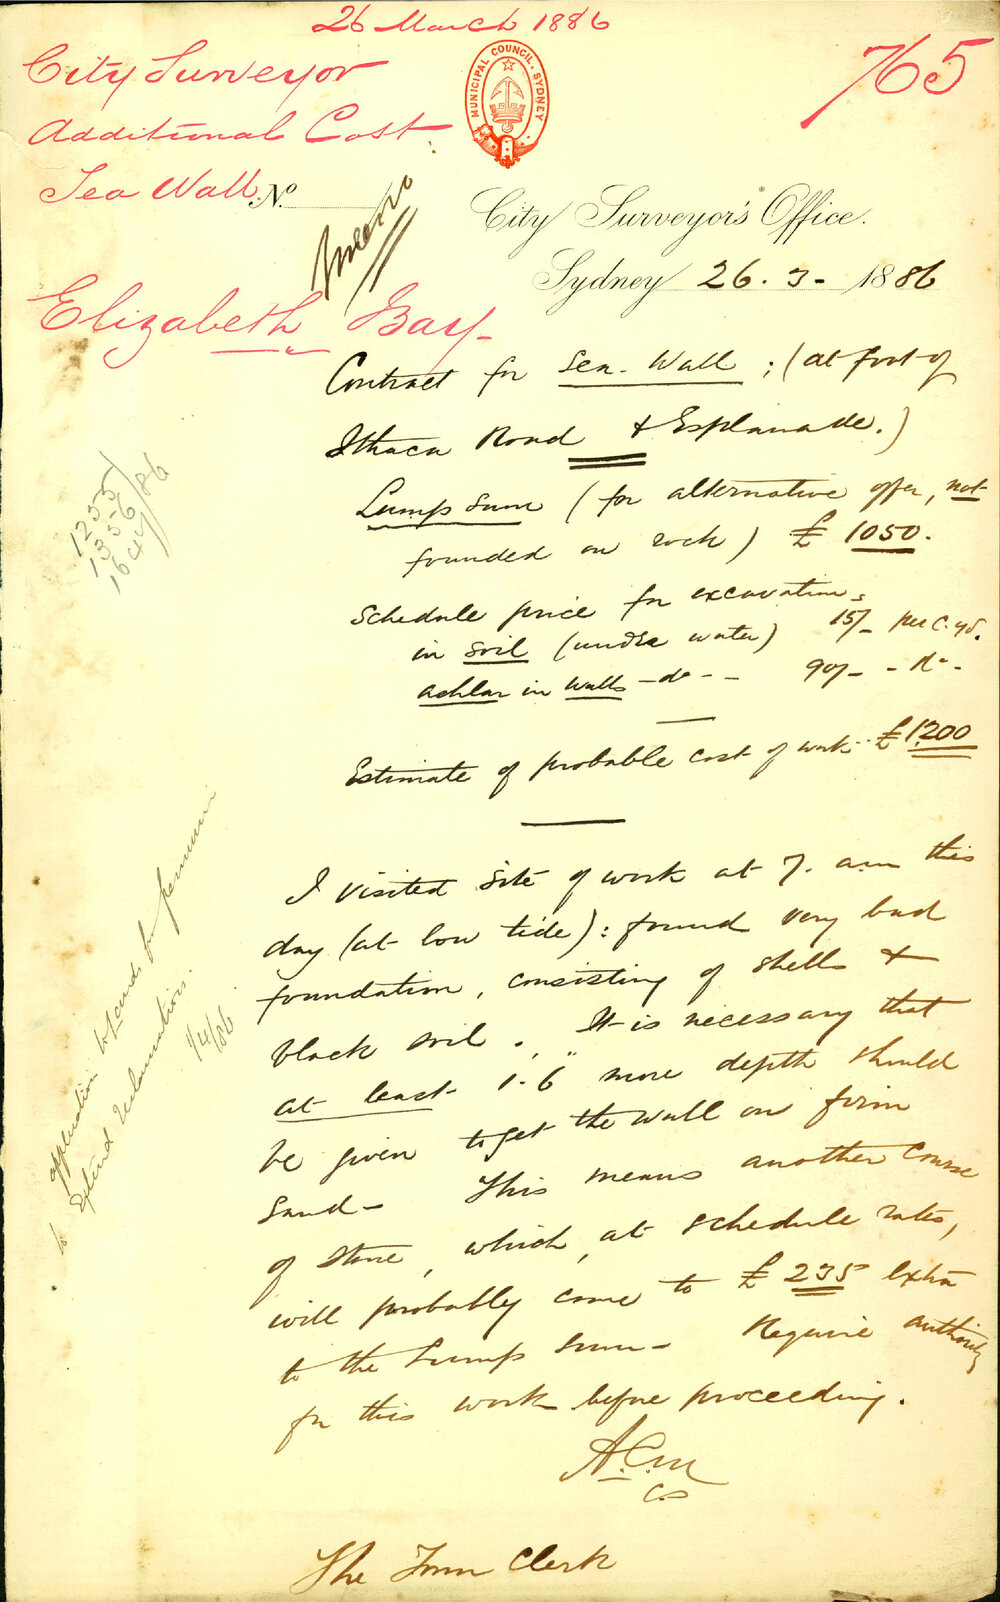 26 March 1886
City Surveyor
Additional Cost
Sea Wall
Elizabeth Bay
765
MUNICIPAL COUNCIL. SYDNEY
No.
Memo
City Surveyor's Office.
Sydney 26.3- 1886
Contract for Sea-Wall; (at foot of
Ithaca Road & Esplanade.)
Lump Sum (for alternative offer, not
founded on rock) £ 1050.
Schedule price for excavation,
in soil (under water) 15/- per c. yd.
ashlar in walls -do- - 90/- - do -
Estimate of probable cost of work £1200
I visited site of work at 7. am this
day (at low tide): found very bad
foundation, consisting of shells &
black soil. It is necessary that
at least 1.6" more depth should
be given to get the wall on firm
sand- This means another course
of stone, which, at schedule rates,
will probably come to £ 235 extra
to the Lump sum- Require authority
for this work before proceeding.
A.C.M
CS
The Town Clerk
1255/
1356/86
1647/
application to Lands for permission
to extend reclamation.
1/4/86